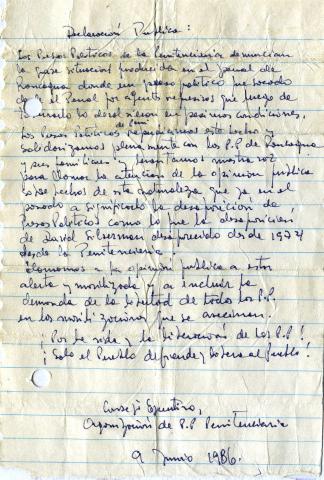 Declaración Pública:
Los Presos Políticos de la Penitenciaria denuncian
la grave situación producida en el penal de
Rancagua donde un preso político fue sacado
de el Penal por agentes represivos que luego de
lo en pesimas condiciones,
Los Presos Políticos repudiamos este hecho y
solidarizamos plenamente con los P.P de Rancagua
y sus familiares y levantamos nuestra voz
para llamar la atención de la opinión pública
sobre hechos de esta naturaleza que ya en el
pasado a significado la desaparición de
Presos Políticos como lo fue la desaparición
de David Silberman desaparecido desde 1974
desde la Penitenciaría
Llamamos a la opinión pública a estar
alerta y movilizada y a incluir la
demanda de la libertad de todos los P.P.
en las movilizaciones que se avecinan.
¡Por la vida y la liberación de los P.P!
¡Solo el Pueblo defiende y libera al Pueblo!
Consejo Ejecutivo,
Organización de P.P Penitenciaria
9 Junio 1986.